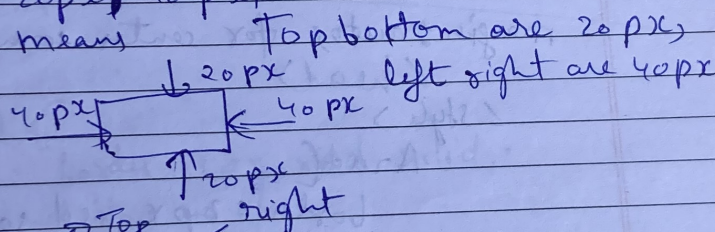 means Top bottom are 20 px,
↓ 20 px left right are 40 px
40 px ← 40 px
↑ 20 px
→ Top right